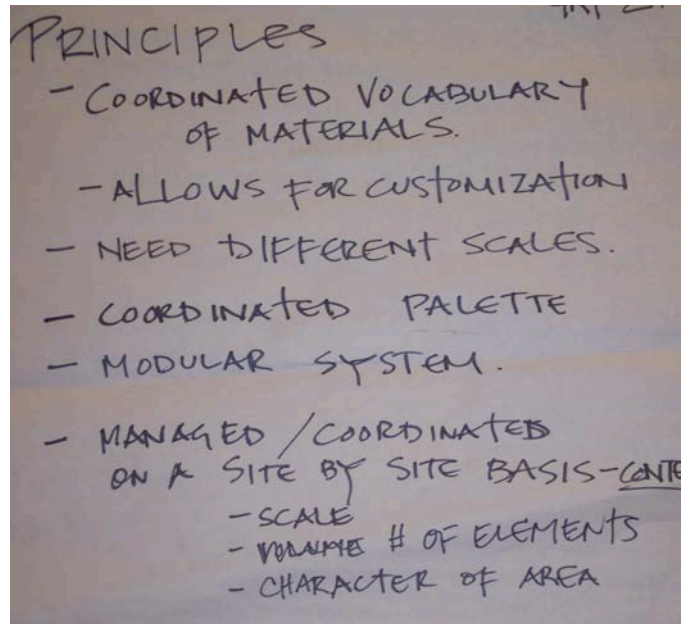 PRINCIPLES
- COORDINATED VOCABULARY
OF MATERIALS.
- ALLOWS FOR CUSTOMIZATION
- NEED DIFFERENT SCALES.
- COORDINATED PALETTE
- MODULAR SYSTEM.
- MANAGED / COORDINATED
ON A SITE BY SITE BASIS - CONTE
- SCALE
- # OF ELEMENTS
- CHARACTER OF AREA